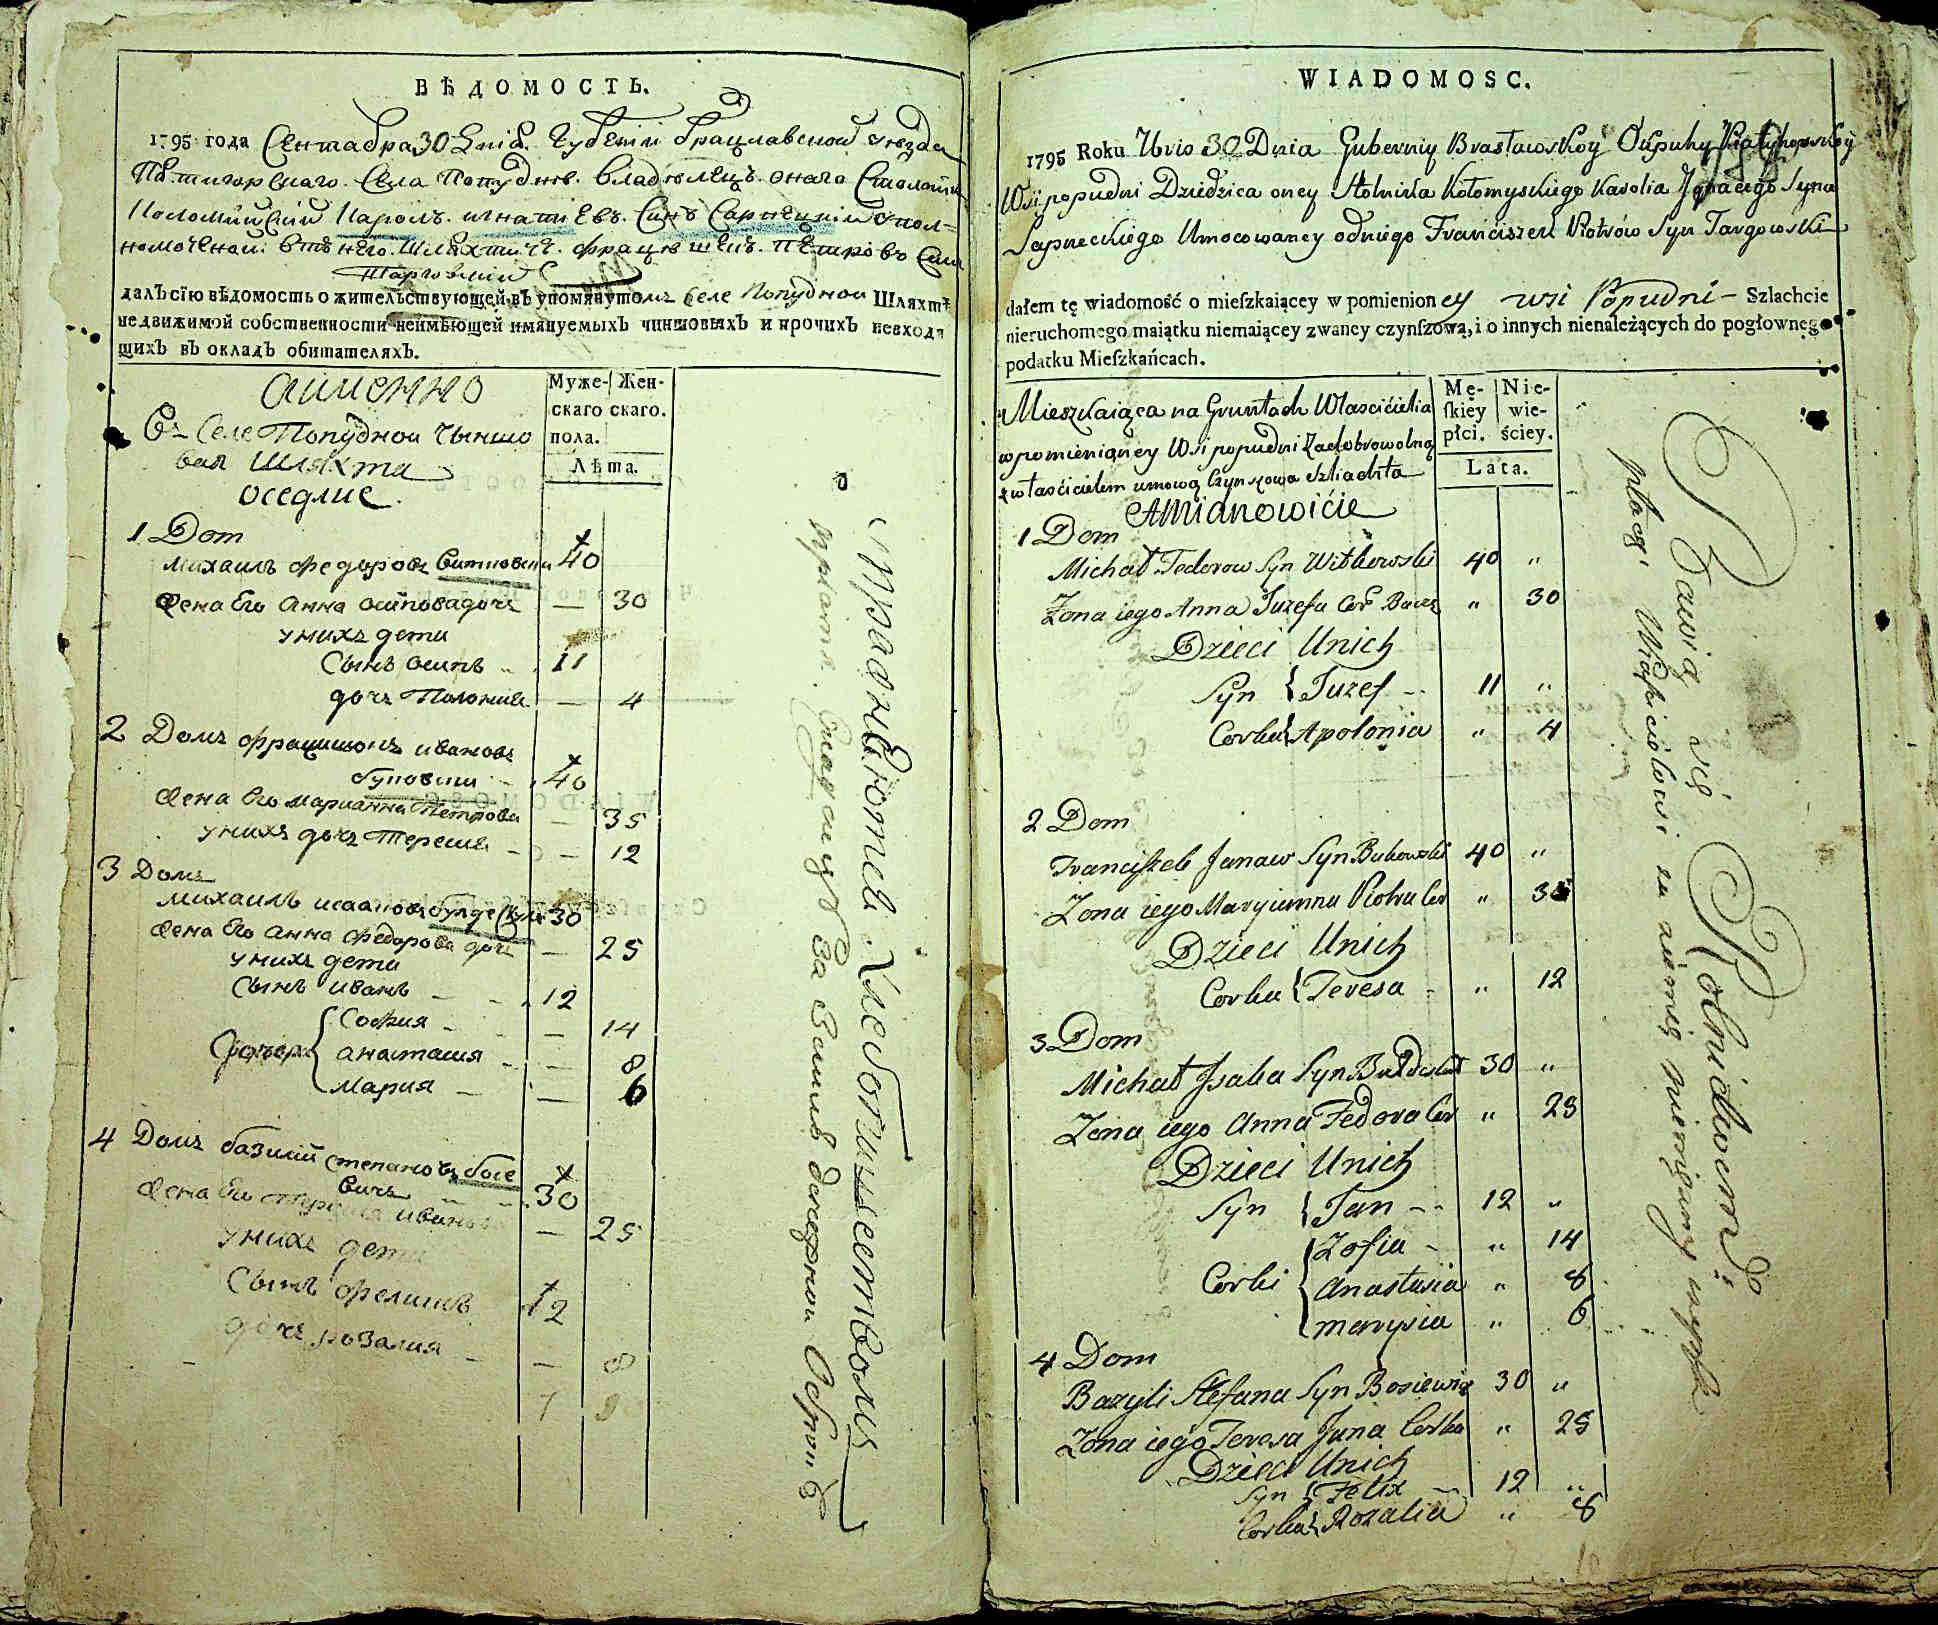 ВѢДОМОСТЬ.
1795 года Сентабра 30 Дніа. Губеніи брацлавской уезда
Пѣтигорскаго. Села Попуднѣ. владѣлецъ. онаго Столникъ
Коломийскій Кароль. игнатіевъ. Синъ Сарнецкій упол=
номоченой. Отъ него. Шляхтичъ. францѣшекъ. пѣтровъ Синъ
Тарговскій
далъ сію вѣдомость о жительствующей въ упомянутомъ Селе Попудной Шляхтѣ
недвижимой собственности неимѣющей имянуемыхъ чиншовыхъ и прочихъ невходя
щихъ въ окладъ обитателяхъ.
аименно
Муже- Жен-
скаго скаго.
пола.
Лѣта.
Въ Селе Попудной Чыншо
вая Шляхта
оседлие.
1 Dom
михаилъ федоровъ витковски 40
Жена Его Анна осипова дочъ — 30
у нихъ дети
Сынъ осипъ 11
дочъ Полония — 4
2 Домъ францишокъ ивановъ
буковски 40
Жена Его марианна Петрова — 35
у нихъ дочъ Тересия — 12
3 Домъ
михаилъ исааковъ 30
Жена Его анна федорова дочъ — 25
у нихъ дети
Сынъ иванъ 12
Дочери { София — 14
анастасия — 8
Мария — 6
4 Домъ базилий степановъ босе
вичъ 30
Жена Его Тересия иванова — 25
у нихъ дети
Сынъ феликсъ 12
дочъ розалия — 8
7 9
упражняются Хлебопашеством
платят. владелцу за землю денежной
WIADOMOSC.
1795 Roku 7bris 30 Dnia Guberniy Brasławskoy Okruhy Piatyhorskoy
Wsij popudni Dziedzica oney Stolnika Kołomyskiego Karolia Ignacego Syna
Sarneckiego Umocowaney odniego Franciszek Piotrów Syn Targowski
dałem tę wiadomość o mieſzkaiącey w pomienioney wsi Popudni — Szlachcie
nieruchomego maiątku niemaiącey zwaney czynſzową, i o innych nienależących do pogłownego
podatku Mieſzkańcach.
Mieszkaiąca na Gruntach Własciciela
wpomienianey Wsi popudni Zadobrowolną
zwłaścicielem umową Czynszowa szliachta
Amianowićie
Mę- Nie-
ſkiey wie-
płci. ściey.
Lata.
1 Dom
Michał Fedorow Syn Witkowski 40 "
Żona iego Anna Juzefa Cor " 30
Dzieci Unich
Syn { Juzef 11 "
Corka { Apolonia " 4
2 Dom
Franciſzek Janow Syn Bukowski 40 "
Żona iego Maryianna Piotra Cor " 35
Dzieci Unich
Corka { Teresa " 12
3 Dom
Michał Jsaka Syn 30 "
Żona iego Anna Fedora Cor " 25
Dzieci Unich
Syn { Jan 12 "
Corki { Zofia " 14
Anastasia " 8
marysia " 6
4 Dom
Bazyli Stefana Syn Bosiewicz 30 "
Żona iego Teresa Jana Corka " 25
Dzieci Unich
Syn { Felix 12 "
Corka { Rozalia " 8
Bawią się Rolnictwem
płacą Właścicielowi za ziemię pieniężny czynsz